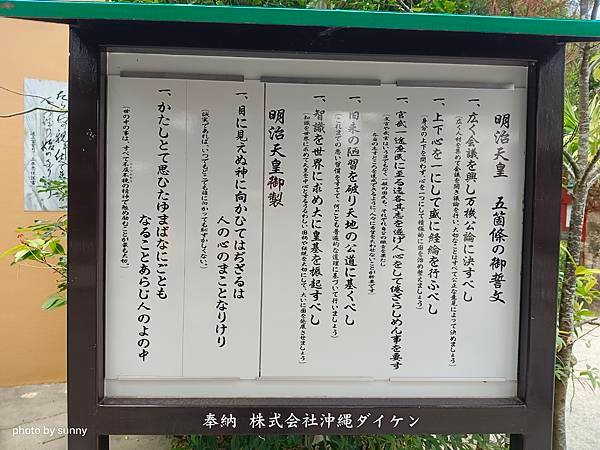 明治天皇 五箇條の御誓文
一、広く会議を興し万機公論に決すべし
(広く人材を集めて会議を開き議論を行い、大切なことはすべて公正な意見によって決めましょう)
一、上下心を一にして盛に経綸を行ふべし
(身分の上下を問わず、心を一つにして積極的に国を治め整えましょう)
一、官武一途庶民に至る迄各其志を遂げ人心をして倦ざらしめん事を要す
(文官や武官はいうまでもなく一般の国民も、それぞれ自分の職責を果たし
各自の志すところを達成できるように、人々に希望を失わせないことが肝要です)
一、旧来の陋習を破り天地の公道に基くべし
(これまでの悪い習慣をすてて、何ごとも普遍的な道理に基づいて行いましょう)
一、智識を世界に求め大に皇基を振起すべし
(知識を世界に求めて天皇を中心とするうるわしい国柄や伝統を大切にして、大いに国を発展させましょう)
明治天皇御製
一、目に見えぬ神に向かひてはぢざるは
人の心のまことなりけり
一、かたしとて思ひたゆまばなにごとも
なることあらじ人のよの中
奉納 株式会社沖縄ダイケン
photo by sunny